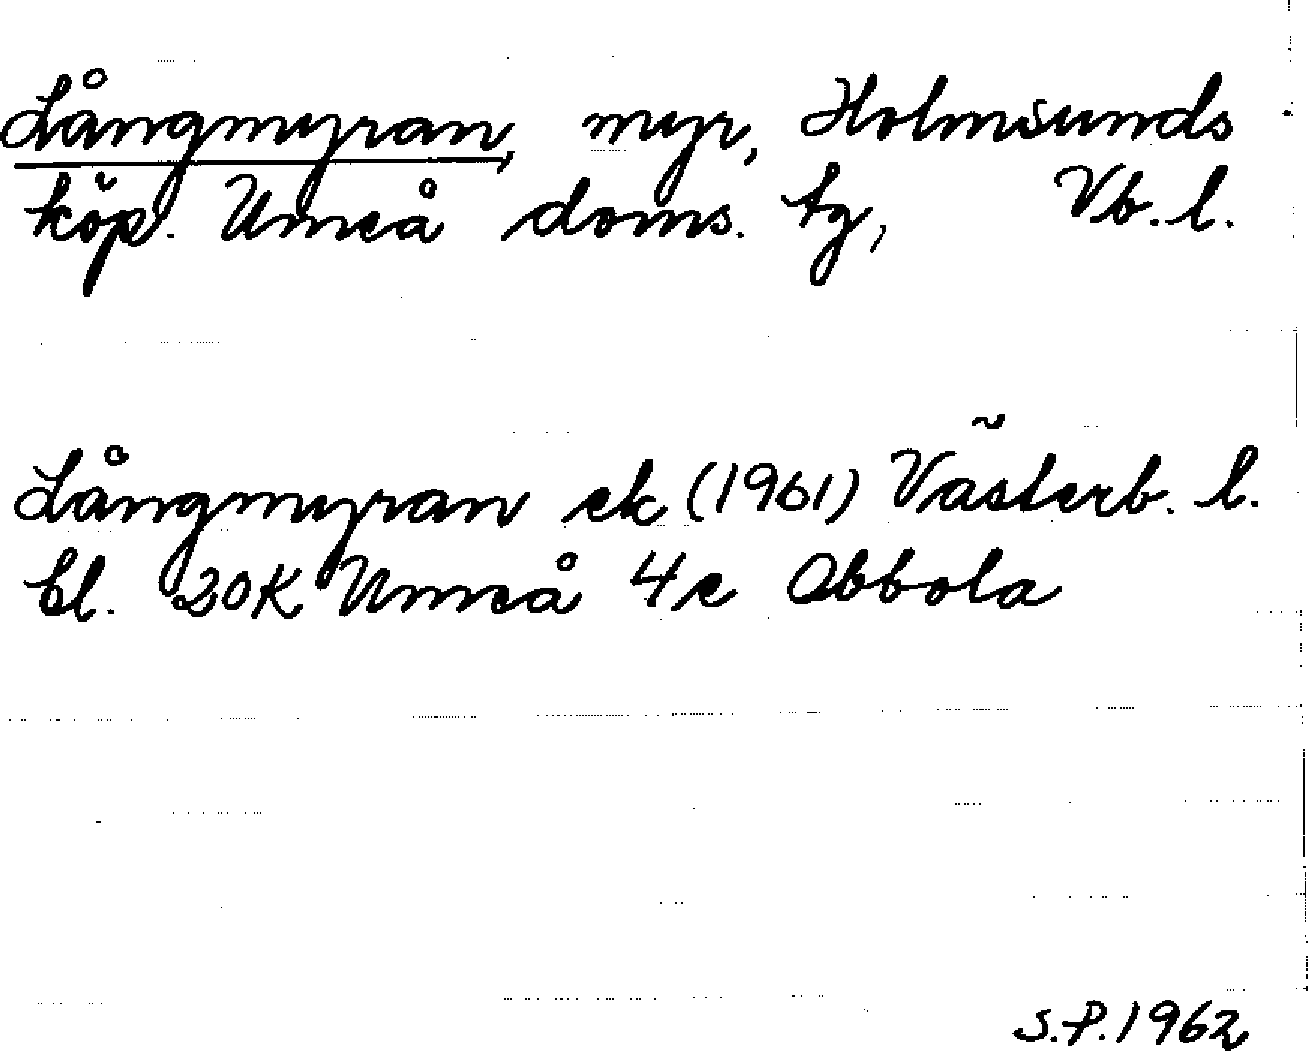 Långmyran, myr, Holmsunds
köp. Umeå doms. tg, Vb. l.
Långmyran ek (1961) Västerb. l.
bl. 20K Umeå 4e Obbola
S.P. 1962